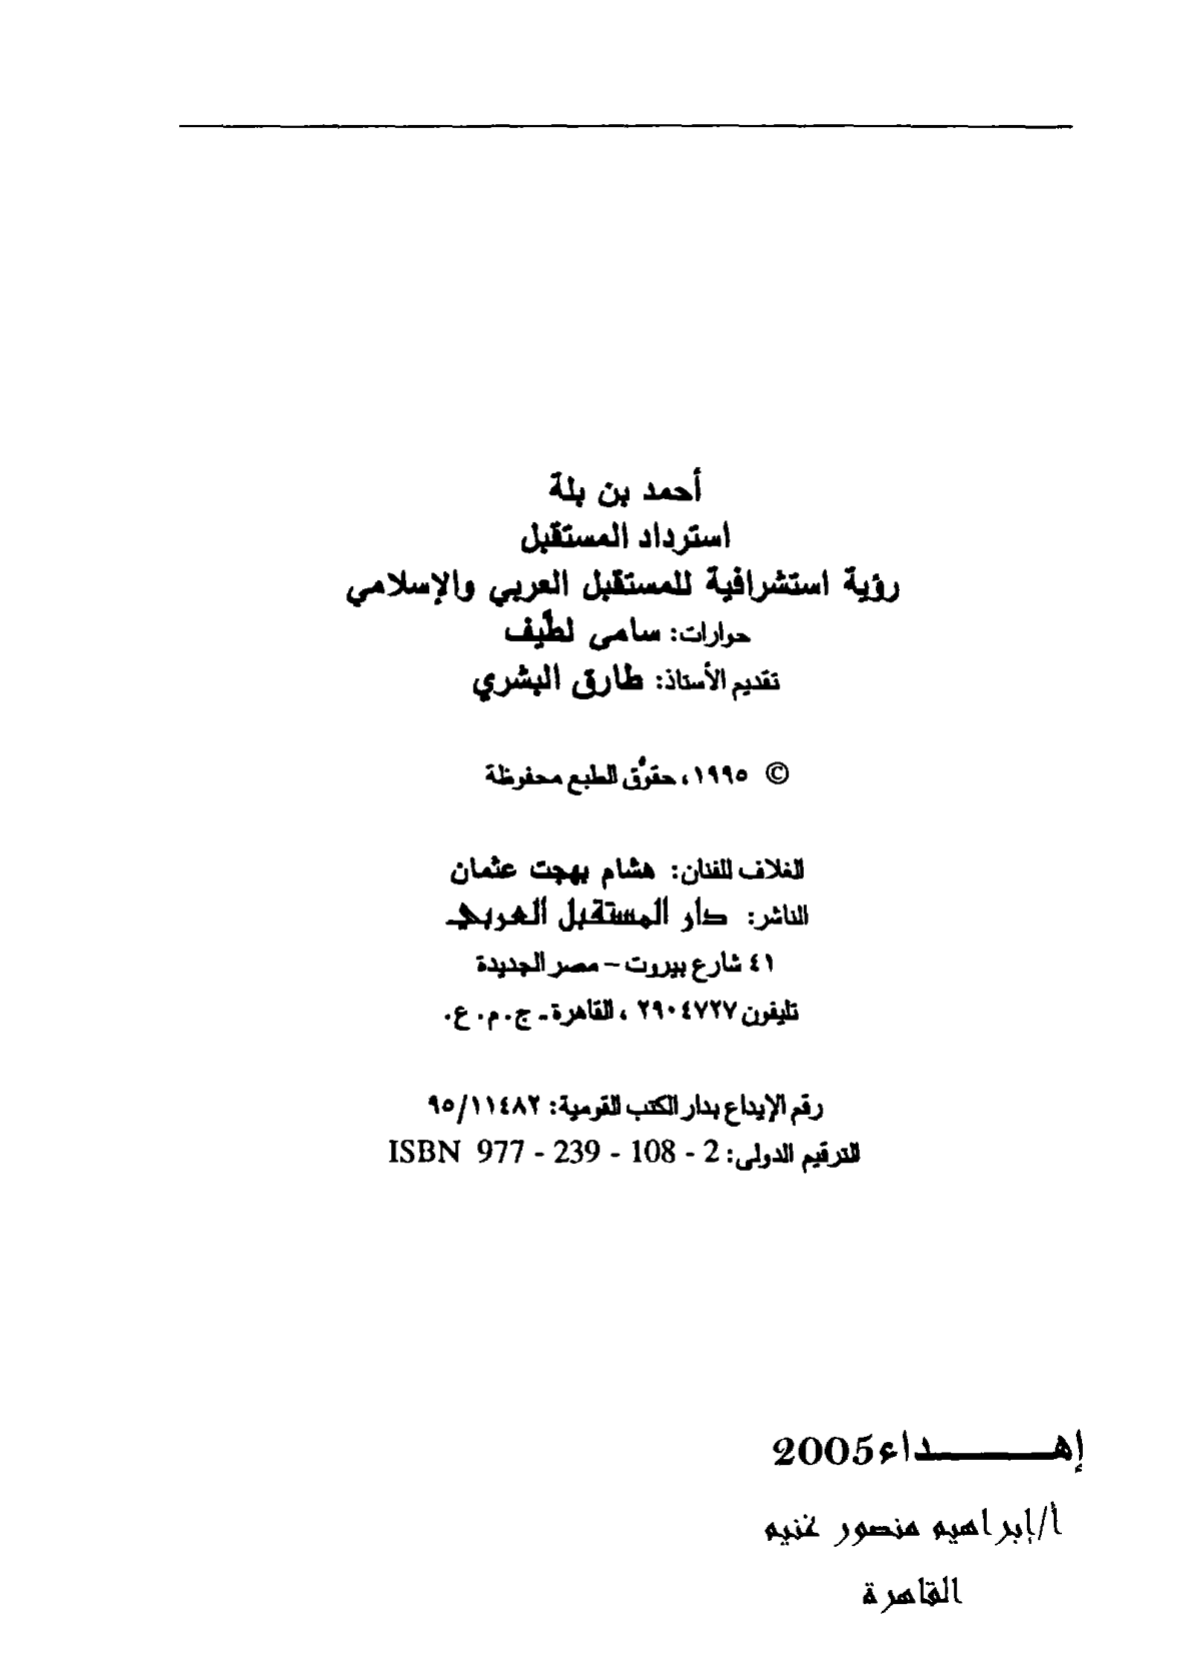 أحمد بن بلة
استرداد المستقبل
رؤية استشرافية للمستقبل العربي والإسلامي
حوارات: سامى لطّيف
تقديم الأستاذ: طارق البشري
© ١٩٩٥، حقوُق الطبع محفوظة
الغلاف للفنان: هشام بهجت عثمان
الناشر: دار المستقبل العربي
٤١ شارع بيروت – مصر الجديدة
تليفون ٢٩٠٤٧٢٧ ، القاهرة ـ ج . م . ع .
رقم الإيداع بدار الكتب القومية: ٩٥/١١٤٨٢
الترقيم الدولى: ISBN 977 - 239 - 108 - 2
إهـــــــداء 2005
أ/إبراهيم منصور غنيم
القاهرة